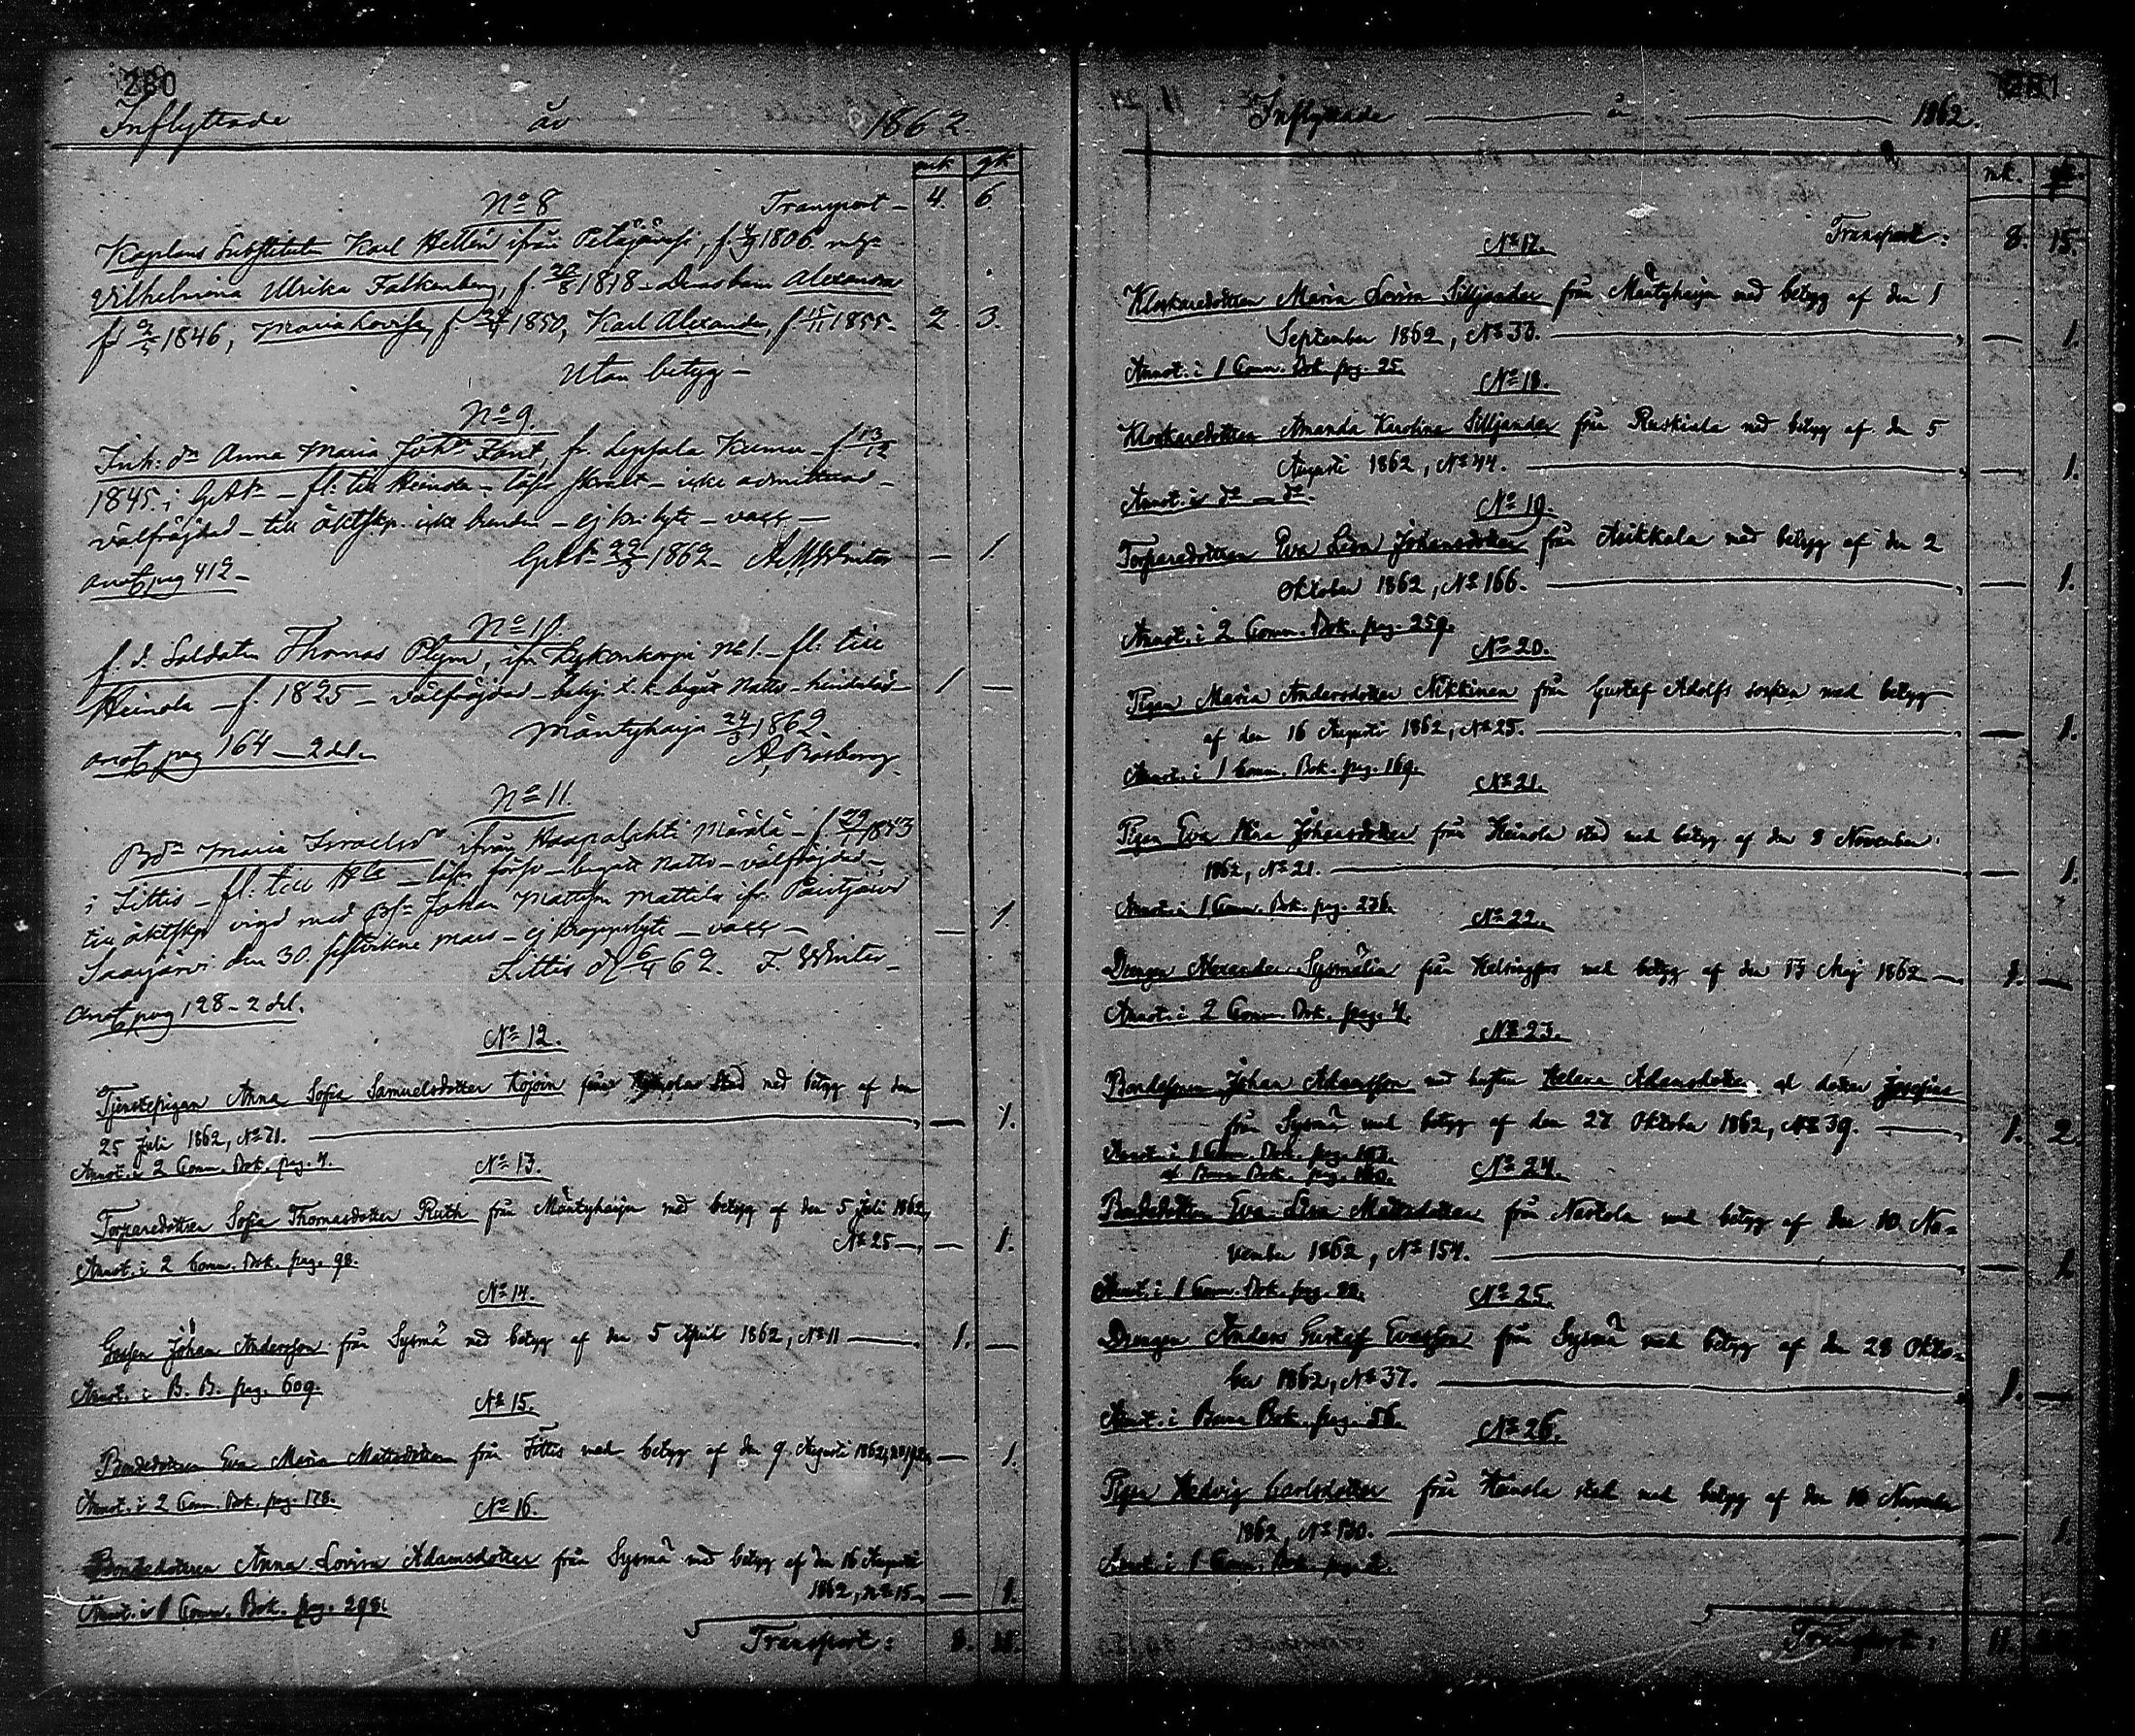 280
Inflyttade år 1862.
mk. qk.
No 8 Transport – 4. 6.
Kaplans Substituten Karl Hellén ifrån Petäjävesi, f. 4/9 1806.
Vilhelmina Ulrika Falkenberg, f. 26/8 1818 – Deras barn Alexandra
f. 2/5 1846, Maria Lovisa, f. 1850, Karl Alexander, f. 15/11 1855. 2. 3.
Utan betyg –
No 9.
Inh: dr Anna Maria Joh:dr Fant, fr. – f. 13/12
1845. i – fl. till Heinola – – icke admitterad –
välfräjdad – till äktskp. icke bunden – – vacc –
22/3 1862 – Winter — 1.
anot. pag 412 –
No 10.
f. d. Soldaten Thomas Plym, ifr. No 1. – fl. till
Heinola – f. 1825 – välfräjdad – begått Nattv – hinderlös – 1 —
Mäntyharju 24/3 1862.
anot pag 164 – 2 del.
No 11.
Bdr Maria Israelsdr ifrån Haapalahti Märälä – f. 29/7 1843
i Iittis – fl. till – – begått Nattv – välfräjdad –
till äktskp vigd med Johan Mattsson Mattila ifr.
den 30. sistvikne mars – ej – vacc – — 1.
Iittis d. 6/4 62. F. Winter –
anot. pag 128 – 2 del.
No 12.
Tjenstepigan Anna Sofia Samuelsdotter Kojoin från stad med betyg af den
25 Juli 1862, No 71. — 1.
Annot. i 2 Comm. Bok. pag. 4.
No 13.
Torparedottren Sofia Thomasdotter Ruth från Mäntyharju med betyg af den 5 Juli 1862,
No 25 — — 1.
Annot. i 2 Comm. Bok. pag. 98.
No 14.
Gossen Johan Andersson från Sysmä med betyg af den 5 April 1862, No 11 — 1. —
Annot. i B. B. pag. 609.
No 15.
Bondedottren Eva Maria Mattsdotter från Iittis med betyg af den 9. Augusti 1862, — 1.
Annot. i 2 Comm. Bok. pag. 178.
No 16.
Bondedottren Anna Lovisa Adamsdotter från Sysmä med betyg af den 16 Augusti
1862, No 15 — — 1.
Annot. i 1 Comm. Bok. pag. 298.
Transport: 8. 15.
281
Inflyttade — år — 1862.
mk. qk.
No 17. Transport: 8. 15.
Klockaredottren Maria Lovisa Silljander från Mäntyharju med betyg af den 1
September 1862, No 30. — 1.
Annot. i 1 Comm. Bok. pag. 25.
No 18.
Klockaredottren Amanda Karolina Silljander från Ruskiala med betyg af den 5
Augusti 1862, No 44. — 1.
Annot. i do — do.
No 19.
Torparedottren Eva Lisa Johansdotter från Asikkala med betyg af den 2
Oktober 1862, No 166. — 1.
Annot. i 2 Comm. Bok. pag. 259.
No 20.
Pigan Maria Andersdotter Nikkinen från Gustaf Adolfs socken med betyg
af den 16 Augusti 1862, No 25. — 1.
Annot. i 1 Comm. Bok. pag. 169.
No 21.
Pigan Eva Johansdotter från Heinola stad med betyg af den 8 November
1862, No 21. — 1.
Annot. i 1 Comm. Bok. pag. 276.
No 22.
Drengen Alexander Sysmälin från Helsingfors med betyg af den 13 Maj 1862 — 1. —
Annot. i 2 Comm. Bok. pag. 4.
No 23.
Bondesonen Johan Adamsson med hustru Helena Adamsdotter och dotter Josefina
från Sysmä med betyg af den 27 Oktober 1862, No 39. — 1. 2.
Annot. i 1 Comm. Bok. pag.
Barna Bok. pag.
No 24.
Bondedottren Eva Lisa Mattsdotter från Nastola med betyg af den 10. No=
vember 1862, No 154. — 1.
Annot. i 1 Comm. Bok. pag. 22.
No 25.
Drengen Anders Gustaf Evasson från Sysmä med betyg af den 28 Okto=
ber 1862, No 37. 1. —
Annot. i Barna Bok. pag. 56.
No 26.
Pigan Hedvig Carlsdotter från Heinola stad med betyg af den 16 November
1862, No 130. — 1.
Annot. i 1 Comm. Bok. pag. 2.
Transport: 11.